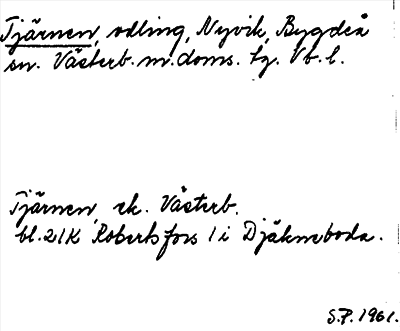 Tjärnen, odling, Nyvik, Bygdeå
sn. Västerb. m. doms. tg. Vb. l.
Tjärnen, ek. Västerb.
bl. 21K Robertsfors 1 i Djäkneboda.
S.P. 1961.